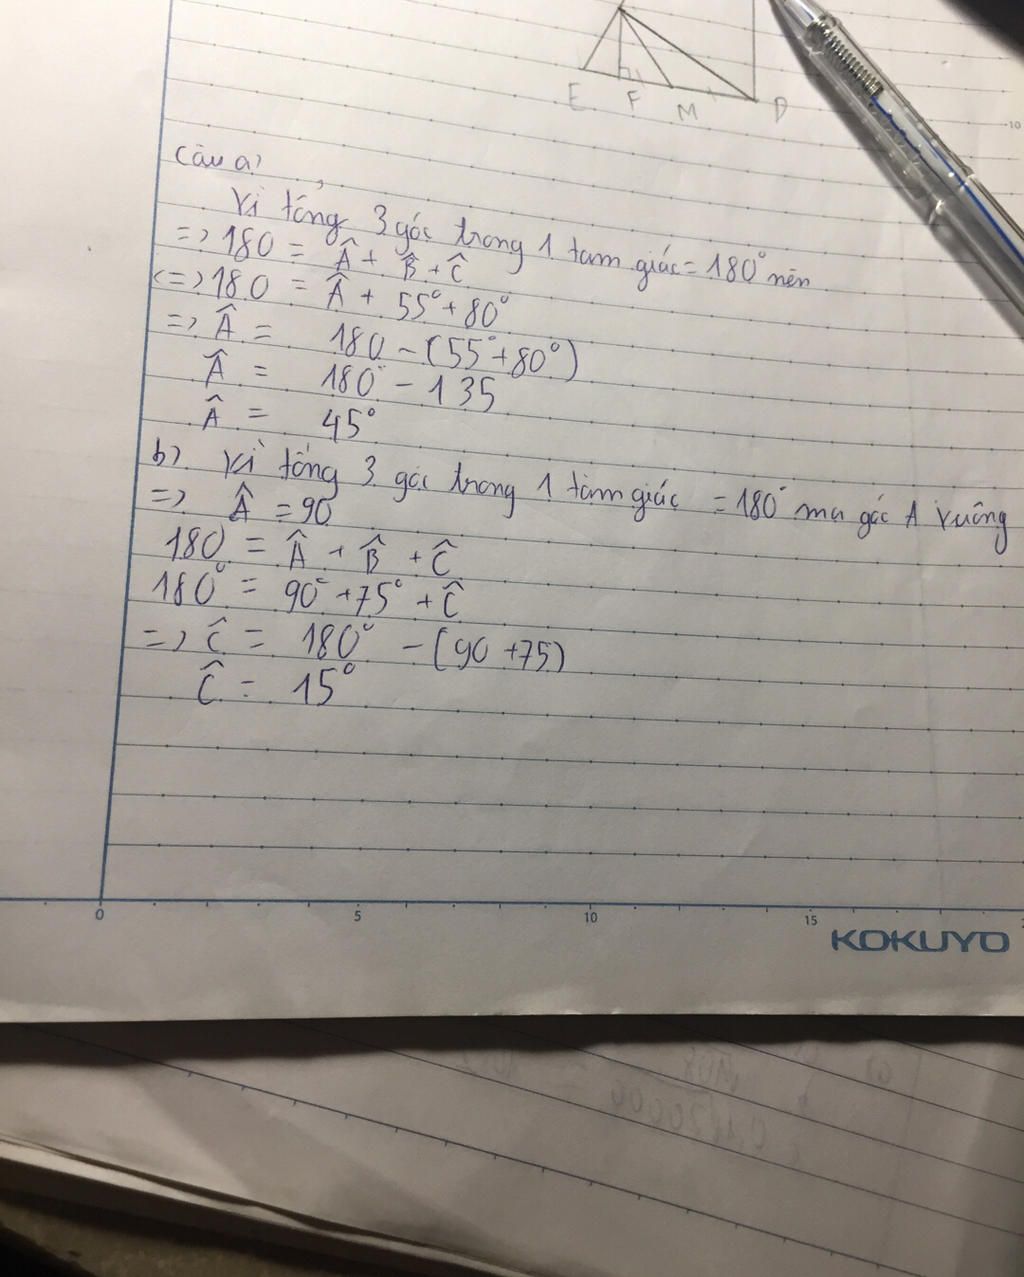 E F M D
10
Câu a,
Vì tổng 3 góc trong 1 tam giác = 180° nên
=> 180 = Â + B̂ + Ĉ
<=> 180 = Â + 55° + 80°
=> Â = 180 - (55° + 80°)
Â = 180° - 135
Â = 45°
b) Vì tổng 3 góc trong 1 tam giác = 180° mà góc A vuông
=> Â = 90
180 = Â + B̂ + Ĉ
180° = 90° + 75° + Ĉ
=> Ĉ = 180° - (90 + 75)
Ĉ = 15°
0 5 10 15
KOKUYO